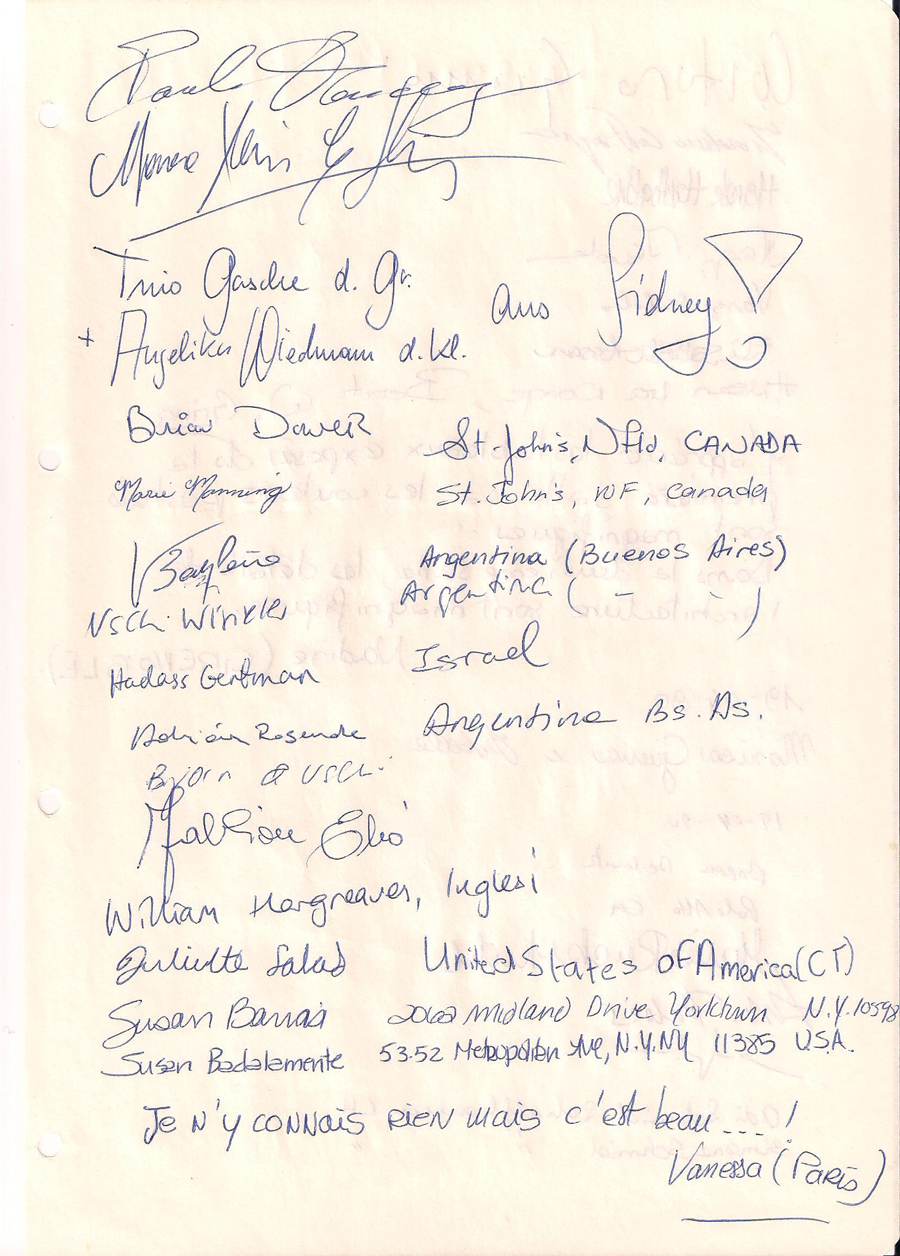 Paul
Trio Gasche d. Gr.
+ Angelika Wiedmann d. kl. aus Sidney
Brian Dower St. John's, Nfld, CANADA
Marie Manning St. John's, NF, Canada
Argentina (Buenos Aires)
Uschi Winkler Argentina ( - - )
Hadass Gertman Israel
Adrián Rosende Argentina Bs. As.
Björn & Uschi
William Hargreaves, Inglesi
Juliette Salad United States of America (CT)
Susan 2062 Midland Drive Yorktown N.Y. 10598
Susan Badalamente 53-52 Metropolitan Ave, N.Y. NY 11385 U.S.A.
Je n'y connais rien mais c'est beau ... !
Vanessa (Paris)